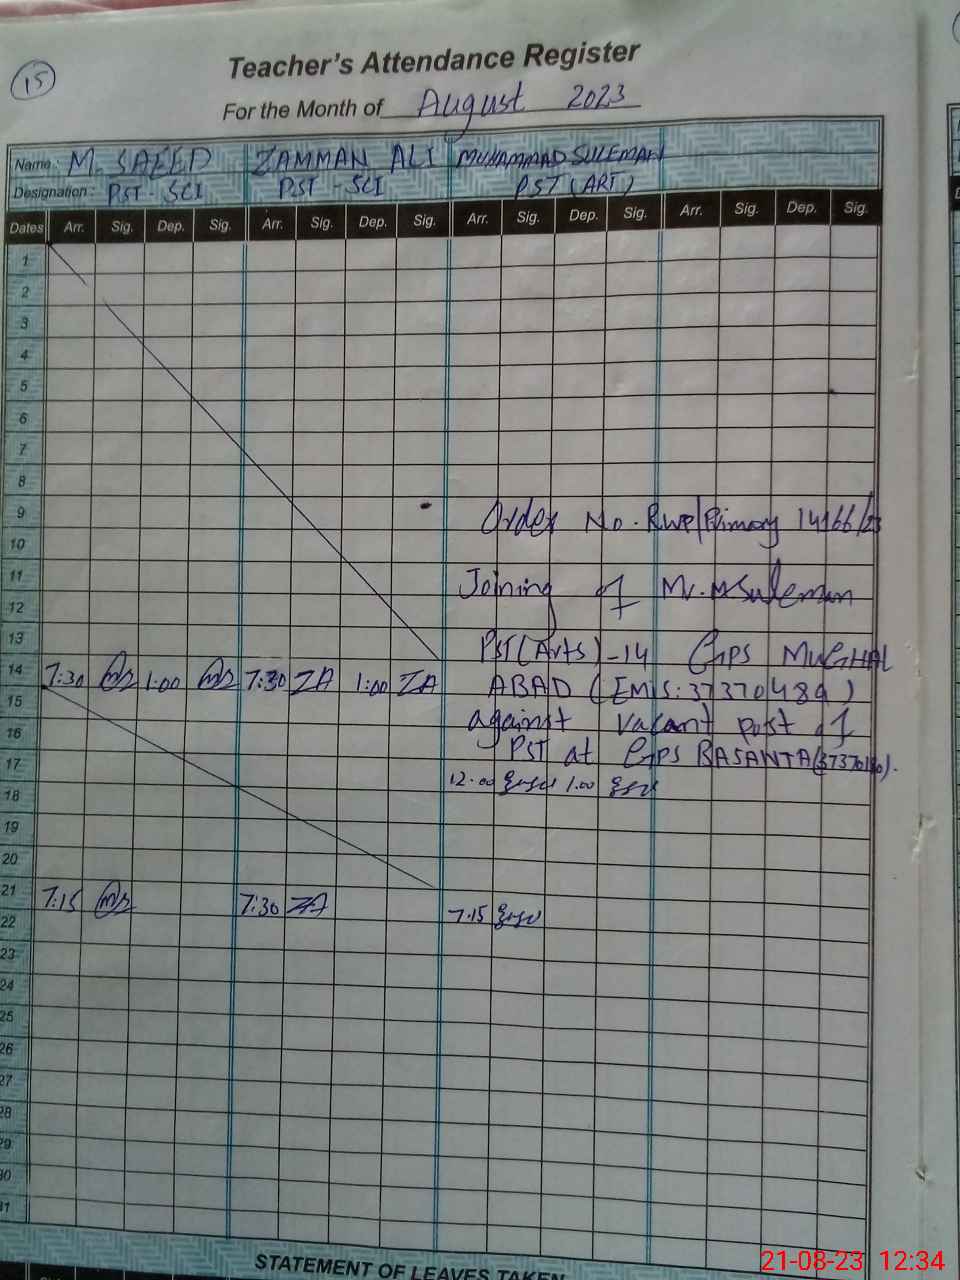 15
Teacher's Attendance Register
For the Month of August 2023
Name: M. SAEED ZAMMAN ALI MUHAMMAD SULEMAN
Designation: PST - SCI PST - SCI PST (ART)
Dates Arr. Sig. Dep. Sig. Arr. Sig. Dep. Sig. Arr. Sig. Dep. Sig. Arr. Sig. Dep. Sig.
1
2
3
4
5
6
7
8
9 Order No. RWP/Primary 14166/23
10
11 Joining of Mr. M Suleman
12
13 PST (Arts) -14 GPS MUGHAL
14 7:30 1:00 7:30 ZA 1:00 ZA ABAD (EMIS: 37370489)
15 against vacant post of
16 PST at GPS BASANTA
17 12.00 1.00
18
19
20
21 7:15 7:30 ZA 7.15
22
23
24
25
26
27
28
29
30
31
STATEMENT OF LEAVES TAKEN
21-08-23 12:34